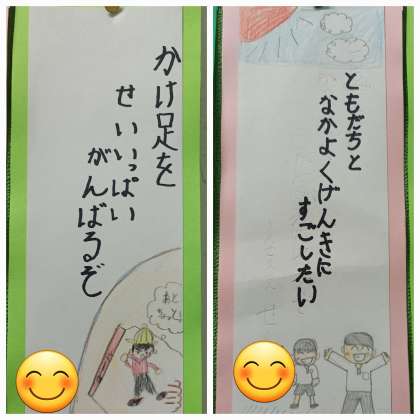 かけ足を
せいいっぱい
がんばるぞ
あと
ちょっと
ともだちと
なかよくげんきに
すごしたい